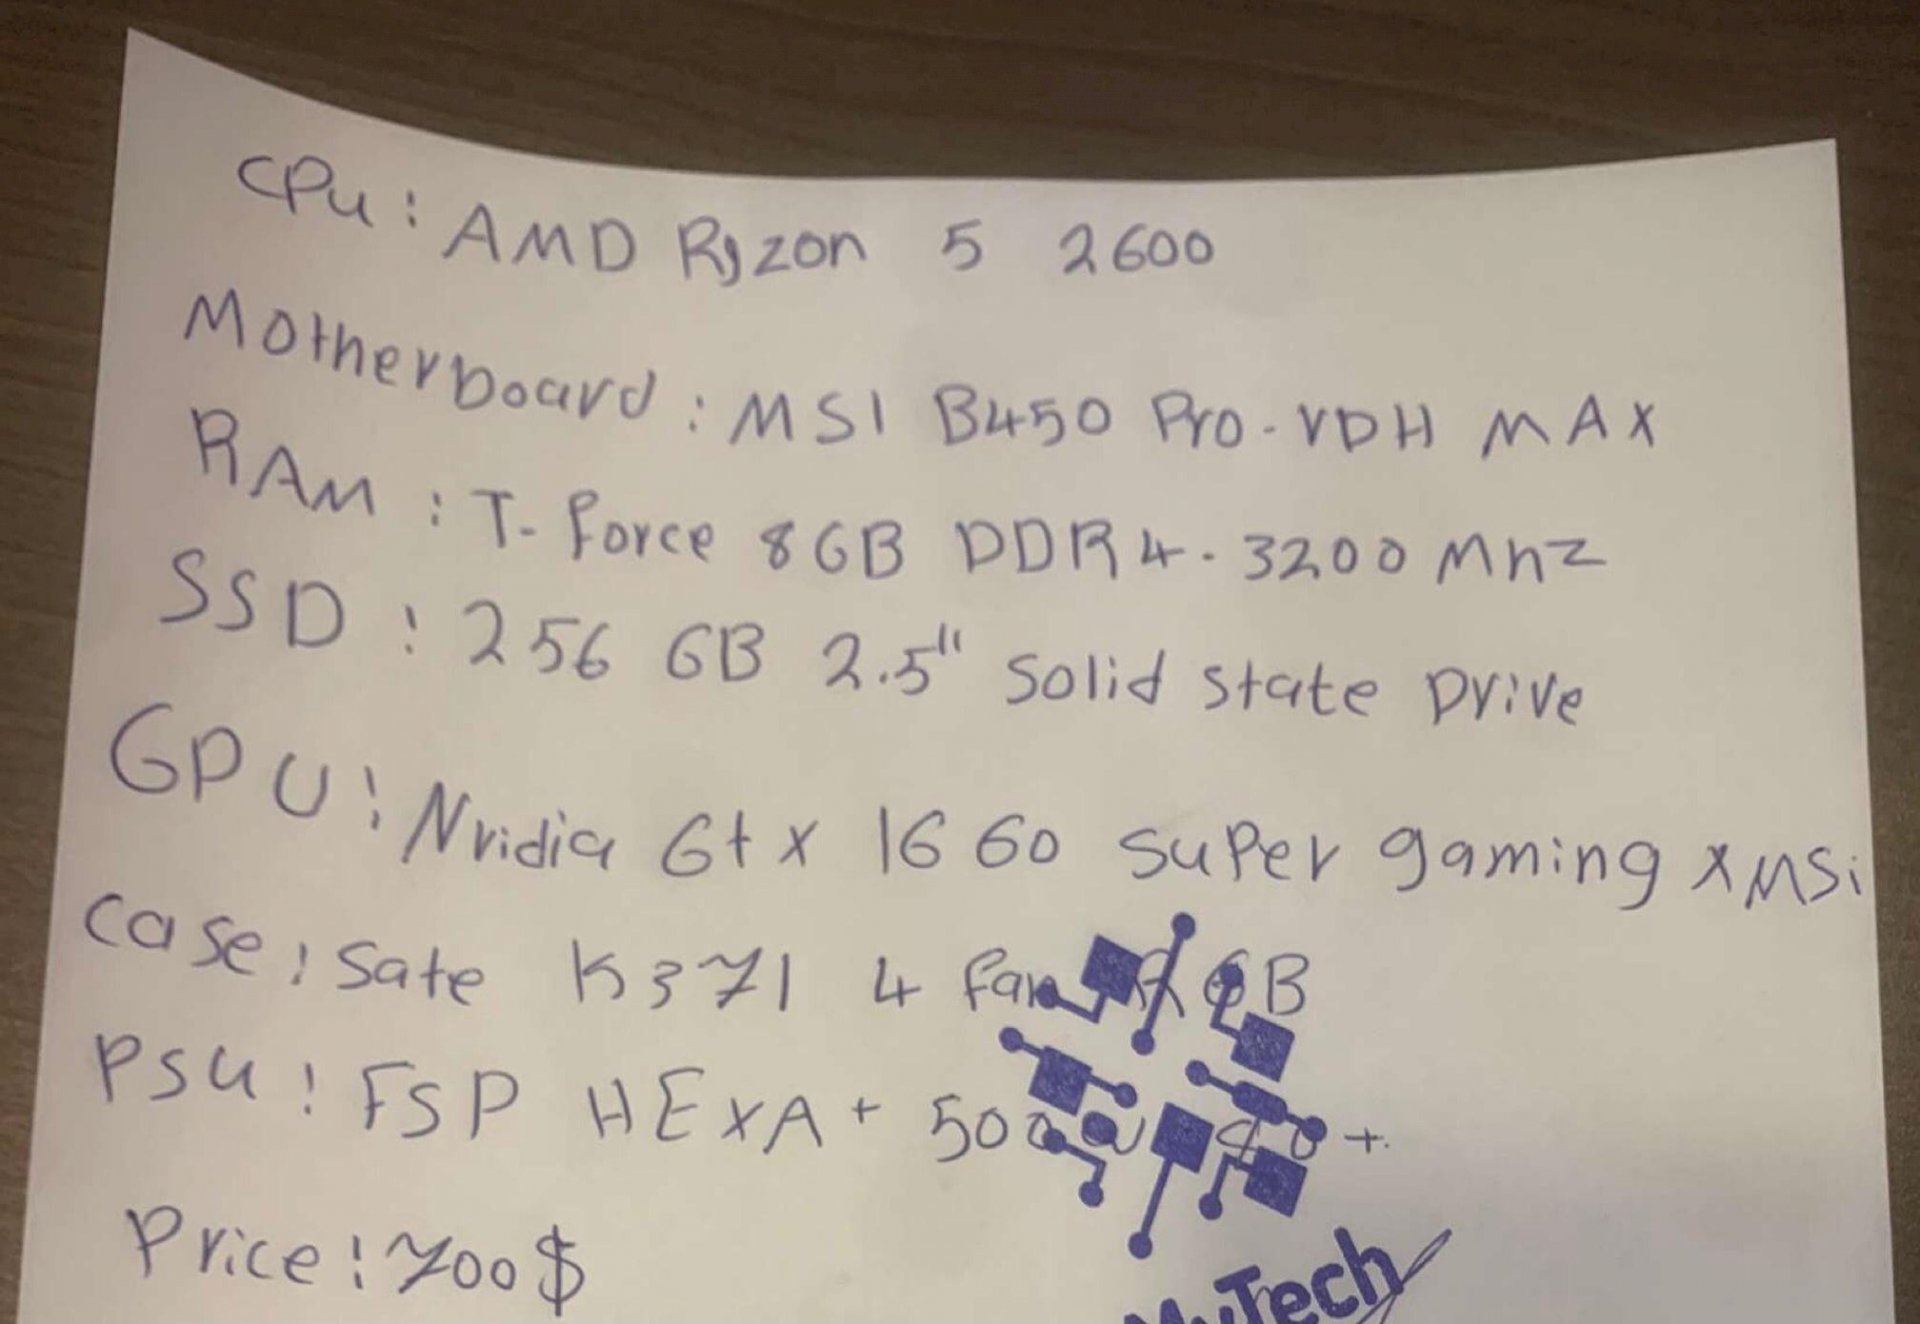 CPu: AMD Ryzon 5 2600
Motherboard: MSI B450 Pro-VDH MAX
RAM: T-Force 8GB DDR4-3200 Mhz
SSD: 256 GB 2.5" Solid State Drive
GPU: Nvidia Gtx 1660 super gaming x MSi
Case: Sate K371 4 fan RGB
PSU: FSP HEXA+ 500W 80+
Price: 700$
MyTech